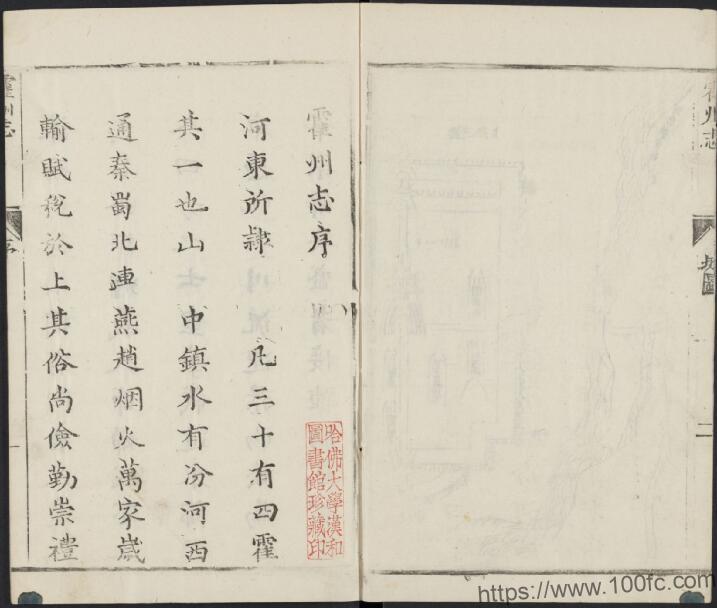 霍州志
圖
二
霍州志序
河東所隷 凡三十有四霍
其一也山 中鎮水有汾河西
通秦蜀北連燕趙烟火萬家歲
輸賦稅於上其俗尚儉勤崇禮
哈佛大學漢和
圖書館珍藏印
霍州志
序
一
https://www.100fc.com